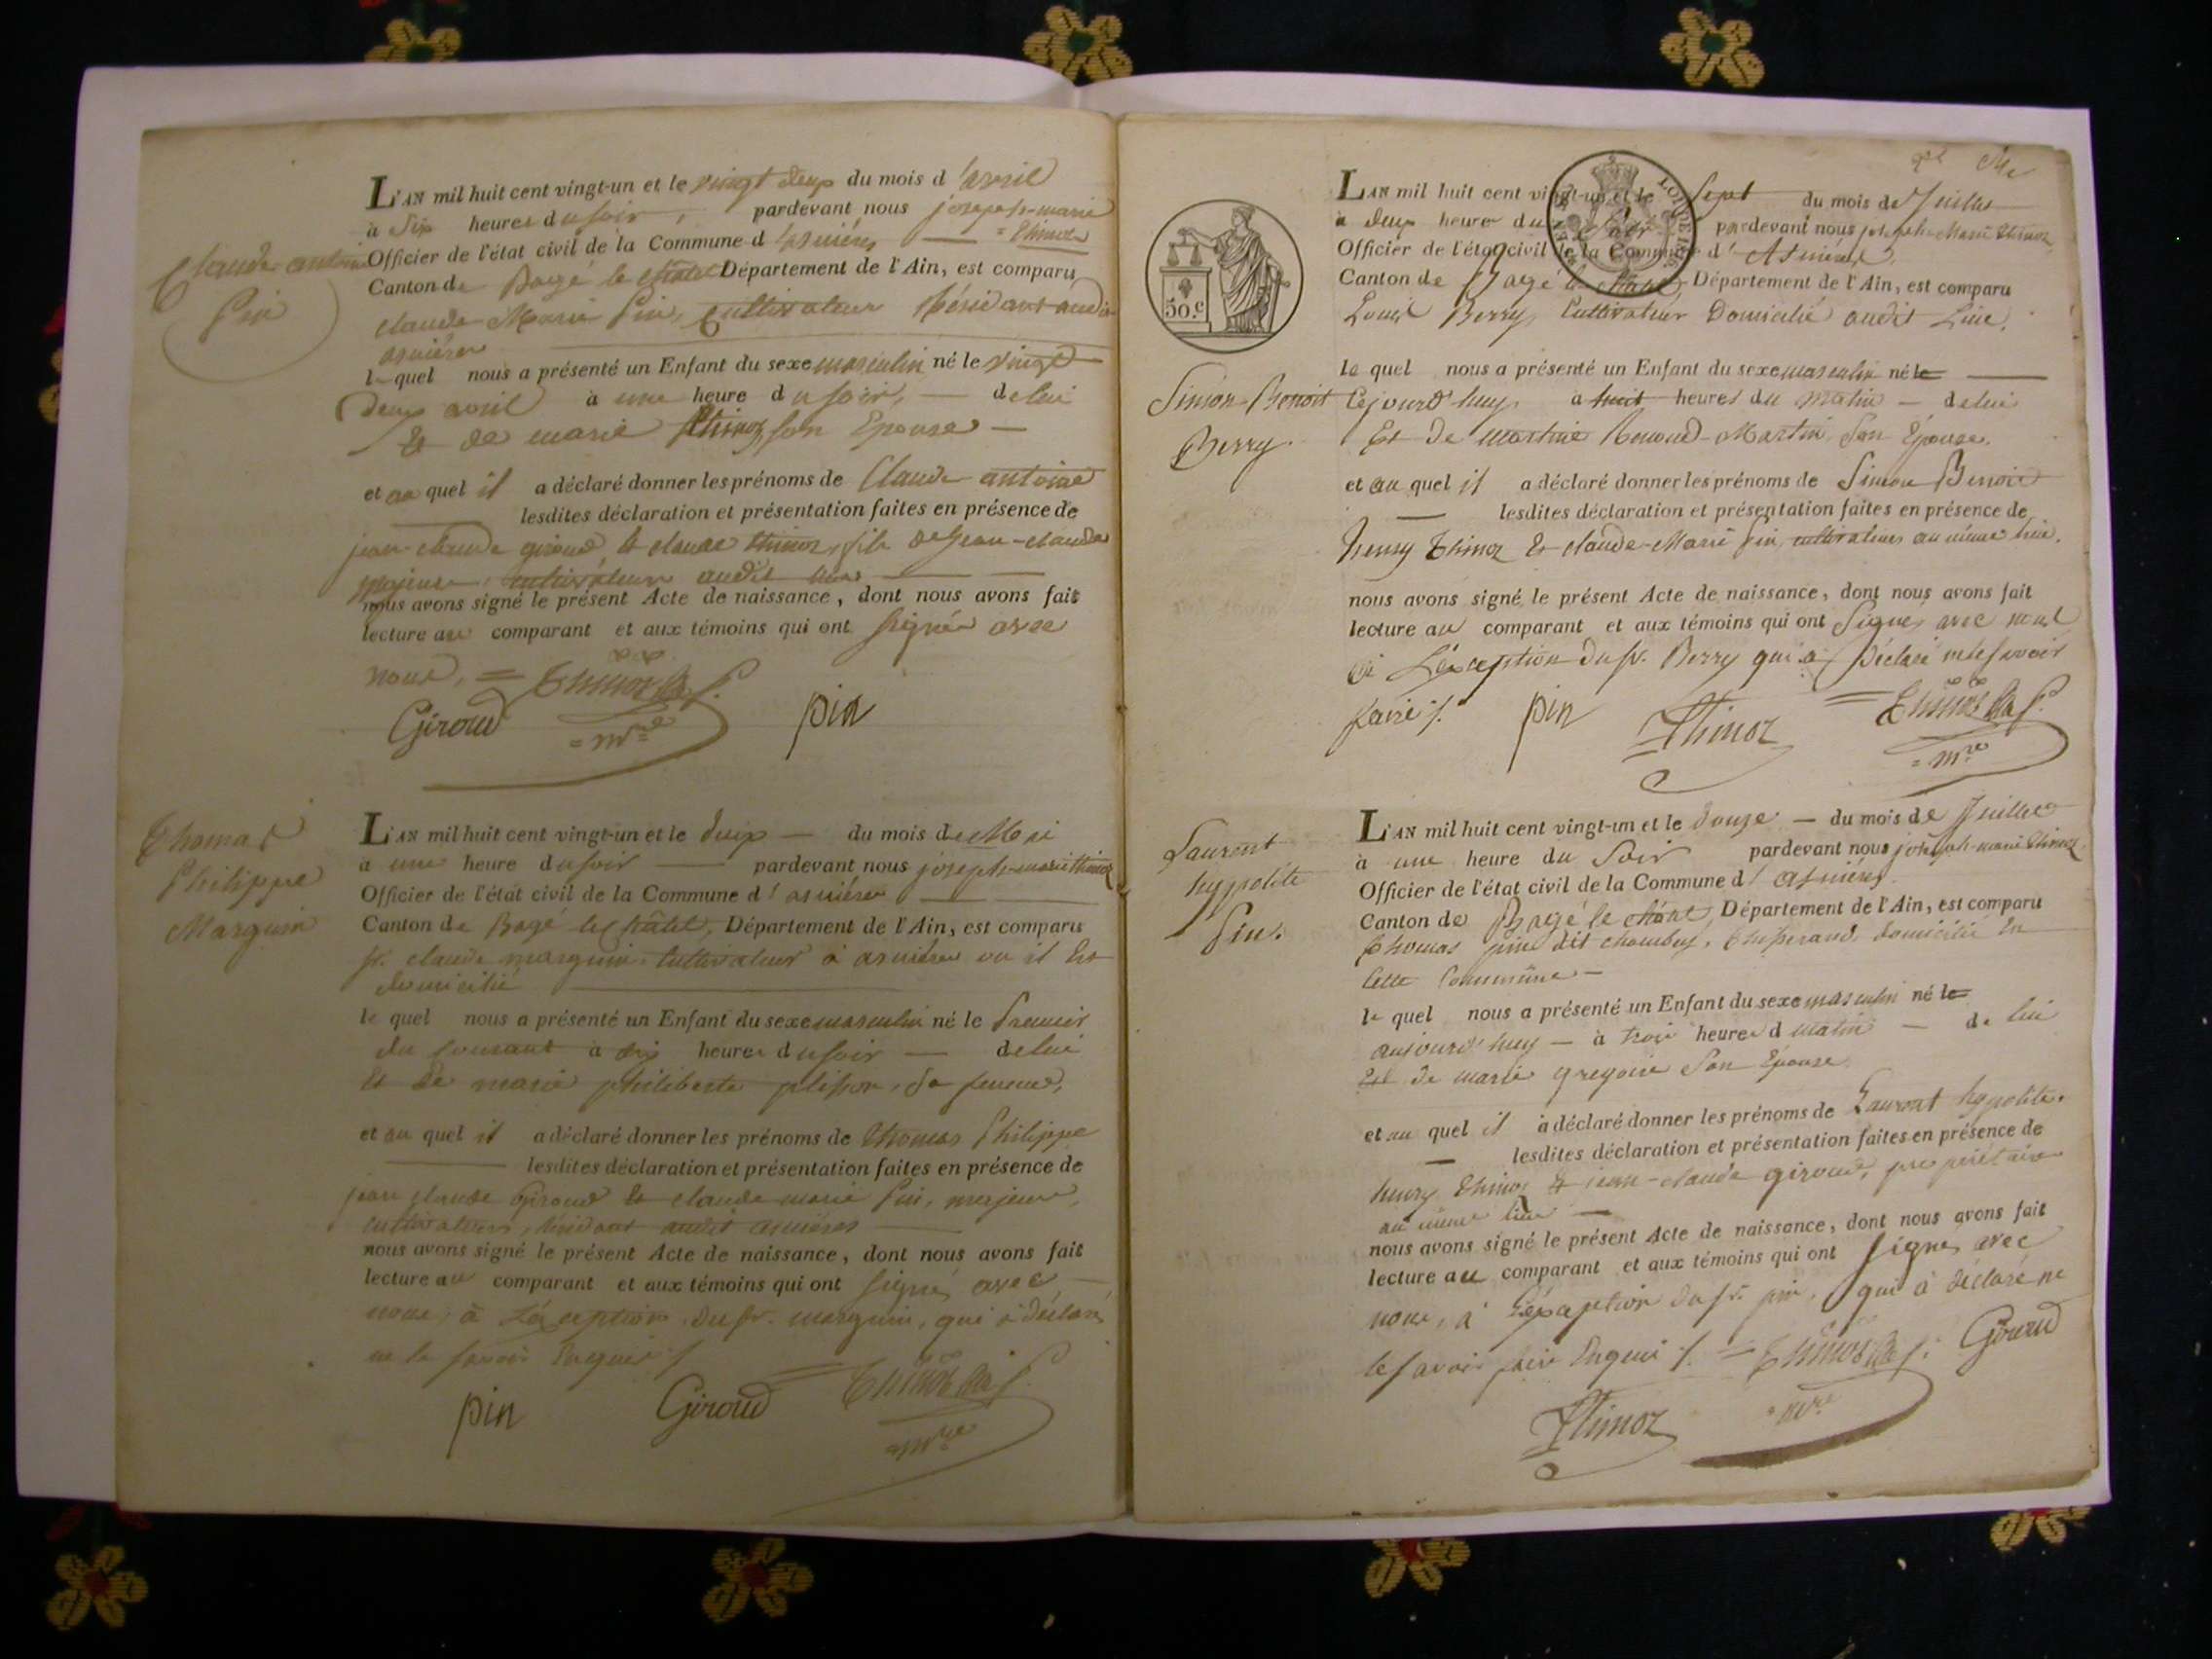 Claude antoine
Pin
L'AN mil huit cent vingt-un et le vingt deux du mois d'avril
à six heures du soir, pardevant nous joseph-marie
= Thinoz
Officier de l'état civil de la Commune d'asnières
Canton de Bagé le Châtel Département de l'Ain, est comparu
claude Marie Pin, cultivateur Résidant audit
asnières
le quel nous a présenté un Enfant du sexe masculin né le vingt
deux avril à une heure du soir, de lui
et de marie Thinoz, son Epouse
et au quel il a déclaré donner les prénoms de Claude antoine
lesdites déclaration et présentation faites en présence de
jean-claude giroud et claude thinoz, fils de jean-claude
majeurs, cultivateurs audit lieu
nous avons signé le présent Acte de naissance, dont nous avons fait
lecture au comparant et aux témoins qui ont signé avec
nous, = Thinoz
Giroud = mre pin
Thomas
Philippe
Marguin
L'AN mil huit cent vingt-un et le deux du mois de Mai
à une heure du soir pardevant nous joseph-marie thinoz
Officier de l'état civil de la Commune d'asnières
Canton de Bagé le Châtel, Département de l'Ain, est comparu
sr. claude marguin, cultivateur à asnières ou il Est
domicilié
le quel nous a présenté un Enfant du sexe masculin né le Premier
du courant à six heures du soir de lui
et de marie philiberte plisson, sa femme,
et au quel il a déclaré donner les prénoms de Thomas Philippe
lesdites déclaration et présentation faites en présence de
jean claude Giroud et claude marie Pin, majeurs,
cultivateurs, Résidant audit asnières
nous avons signé le présent Acte de naissance, dont nous avons fait
lecture au comparant et aux témoins qui ont signé avec
nous, à L'éxception du sr. marguin, qui à déclaré
ne le savoir Enquis ./.
pin Giroud = Thinoz
= mre
50.c
Simon-Benoit
Berry.
L'AN mil huit cent vingt-un et le Sept du mois de Juillet
à deux heure du soir pardevant nous joseph-Marie Thinoz
Officier de l'état civil de la Commune d'Asnières
Canton de Bagé le Châtel, Département de l'Ain, est comparu
Louis Berry, Cultivateur Domicilié audit Lieu.
le quel nous a présenté un Enfant du sexe masculin né le
Cejourd'huy à huit heures du matin de lui
Et De Martine Renoud-Martin, Son Epouse.
et au quel il a déclaré donner les prénoms de Simon Benoit
lesdites déclaration et présentation faites en présence de
henry Thinoz et claude-Marie Pin, cultivateurs au même lieu.
nous avons signé le présent Acte de naissance, dont nous avons fait
lecture au comparant et aux témoins qui ont Signé, avec nous
à L'éxception du sr. Berry qui à Déclaré ne le savoir
faire ./. pin Thinoz = Thinoz
= mre
Laurent
hyppolite
Pin.
L'AN mil huit cent vingt-un et le douze du mois de Juillet
à une heure du Soir pardevant nous joseph-marie Thinoz
Officier de l'état civil de la Commune d'asnières
Canton de Bagé le Châtel, Département de l'Ain, est comparu
Thomas pin dit chambus, domicilié En
Cette Commune
le quel nous a présenté un Enfant du sexe masculin né le
aujourd'huy à trois heures d matin de lui
Et de marie gregoire Son Epouse
et au quel il à déclaré donner les prénoms de Laurent hypolite.
lesdites déclaration et présentation faites en présence de
henry Thinoz & jean-claude giroud, propriétaires
au même lieu
nous avons signé le présent Acte de naissance, dont nous avons fait
lecture au comparant et aux témoins qui ont signé, avec
nous, à L'éxception du sr. pin, qui à déclaré ne
le savoir faire Enquis ./. = Thinoz Giroud
Thinoz = mre